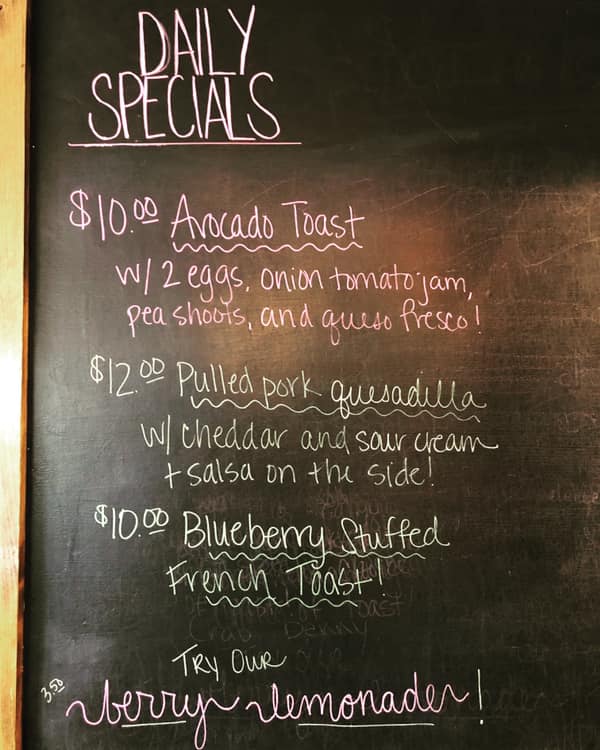 DAILY
SPECIALS
$10.00 Avocado Toast
w/ 2 eggs, onion tomato jam,
pea shoots, and queso fresco!
$12.00 Pulled pork quesadilla
w/ cheddar and sour cream
+ salsa on the side!
$10.00 Blueberry Stuffed
French Toast!
Toast
Crab Benny
TRY OUR
3.50 berry lemonade!